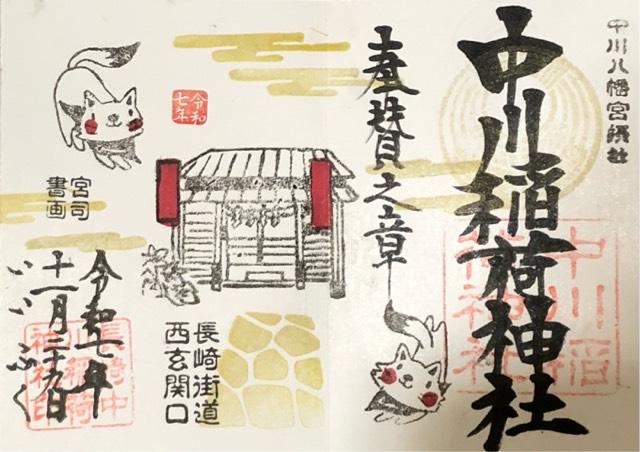 中川八幡宮摂社
中川稲荷神社
中川稲
荷神社
奉賛之章
令和
七年
長崎街道
西玄関口
宮司
書画
令和七年
十一月二十九日
いいふく
長崎中
川稲荷
神社印